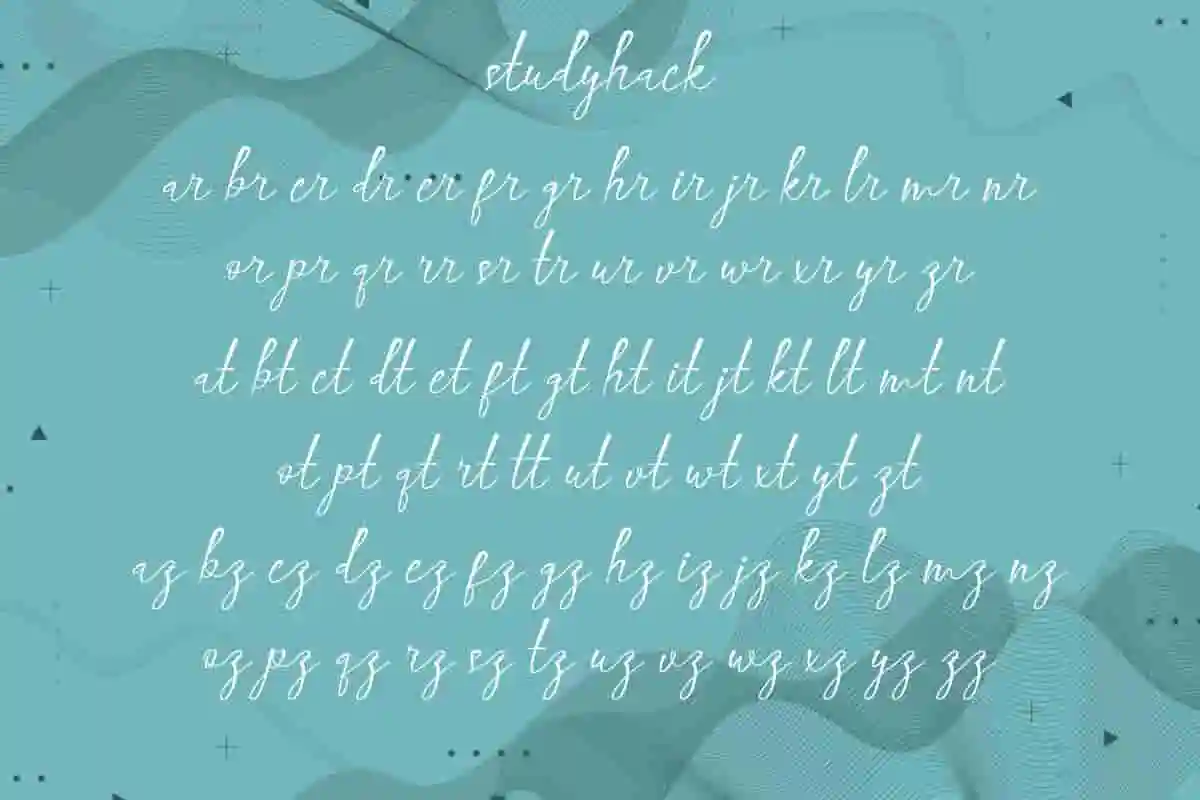 studyhack
ar br cr dr er fr gr hr ir jr kr lr mr nr
or pr qr rr sr tr ur vr wr xr yr zr
at bt ct dt et ft gt ht it jt kt lt mt nt
ot pt qt rt tt ut vt wt xt yt zt
az bz cz dz ez fz gz hz iz jz kz lz mz nz
oz pz qz rz sz tz uz vz wz xz yz zz